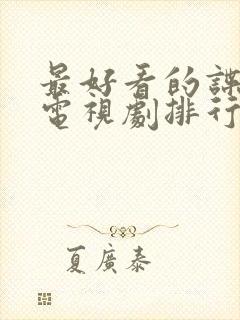 最好看的諜
電視劇排行
夏廣泰